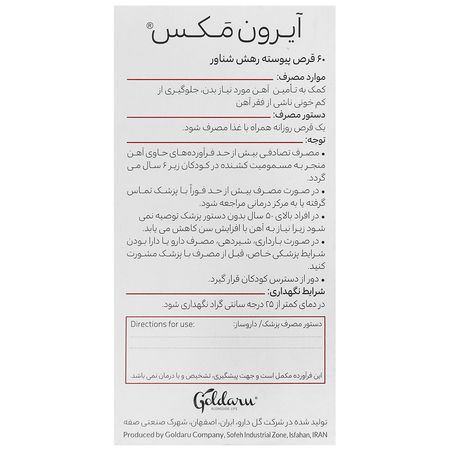 آیرون مَکس®
۶۰ قرص پیوسته رهش شناور
موارد مصرف:
کمک به تأمین آهن مورد نیاز بدن، جلوگیری از
کم خونی ناشی از فقر آهن
دستور مصرف:
یک قرص روزانه همراه با غذا مصرف شود.
توجه:
• مصرف تصادفی بیش از حد فرآورده‌های حاوی آهن
منجر به مسمومیت کشنده در کودکان زیر ۶ سال می
گردد.
• در صورت مصرف بیش از حد فوراً با پزشک تماس
گرفته یا به مرکز درمانی مراجعه شود.
• در افراد بالای ۵۰ سال بدون دستور پزشک توصیه نمی
شود زیرا نیاز به آهن با افزایش سن کاهش می یابد.
• در صورت بارداری، شیردهی، مصرف دارو یا دارا بودن
شرایط پزشکی خاص، قبل از مصرف با پزشک مشورت
کنید.
• دور از دسترس کودکان قرار گیرد.
شرایط نگهداری:
در دمای کمتر از ۲۵ درجه سانتی گراد نگهداری شود.
دستور مصرف پزشک/ داروساز: Directions for use:
این فرآورده مکمل است و جهت پیشگیری، تشخیص و یا درمان نمی باشد.
Goldaru®
ALONGSIDE LIFE
تولید شده در شرکت گل دارو، ایران، اصفهان، شهرک صنعتی صفه
Produced by Goldaru Company, Sofeh Industrial Zone, Isfahan, IRAN